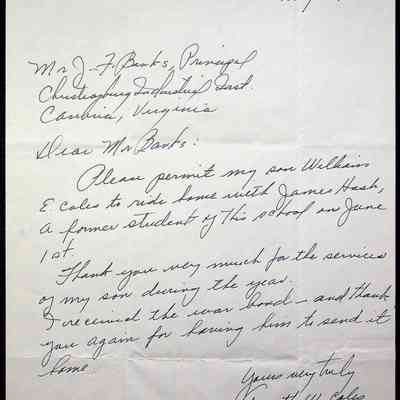 Mr J. F. Banks, Principal
Christiansburg Industrial Inst.
Cambria, Virginia
Dear Mr Banks:
Please permit my son William
E. Coles to ride home with James Hash,
a former student of this school on June
1st.
Thank you very much for the services
of my son during the year.
I received the war bond - and thank
you again for having him to send it
home.
Yours very truly
W. Coles